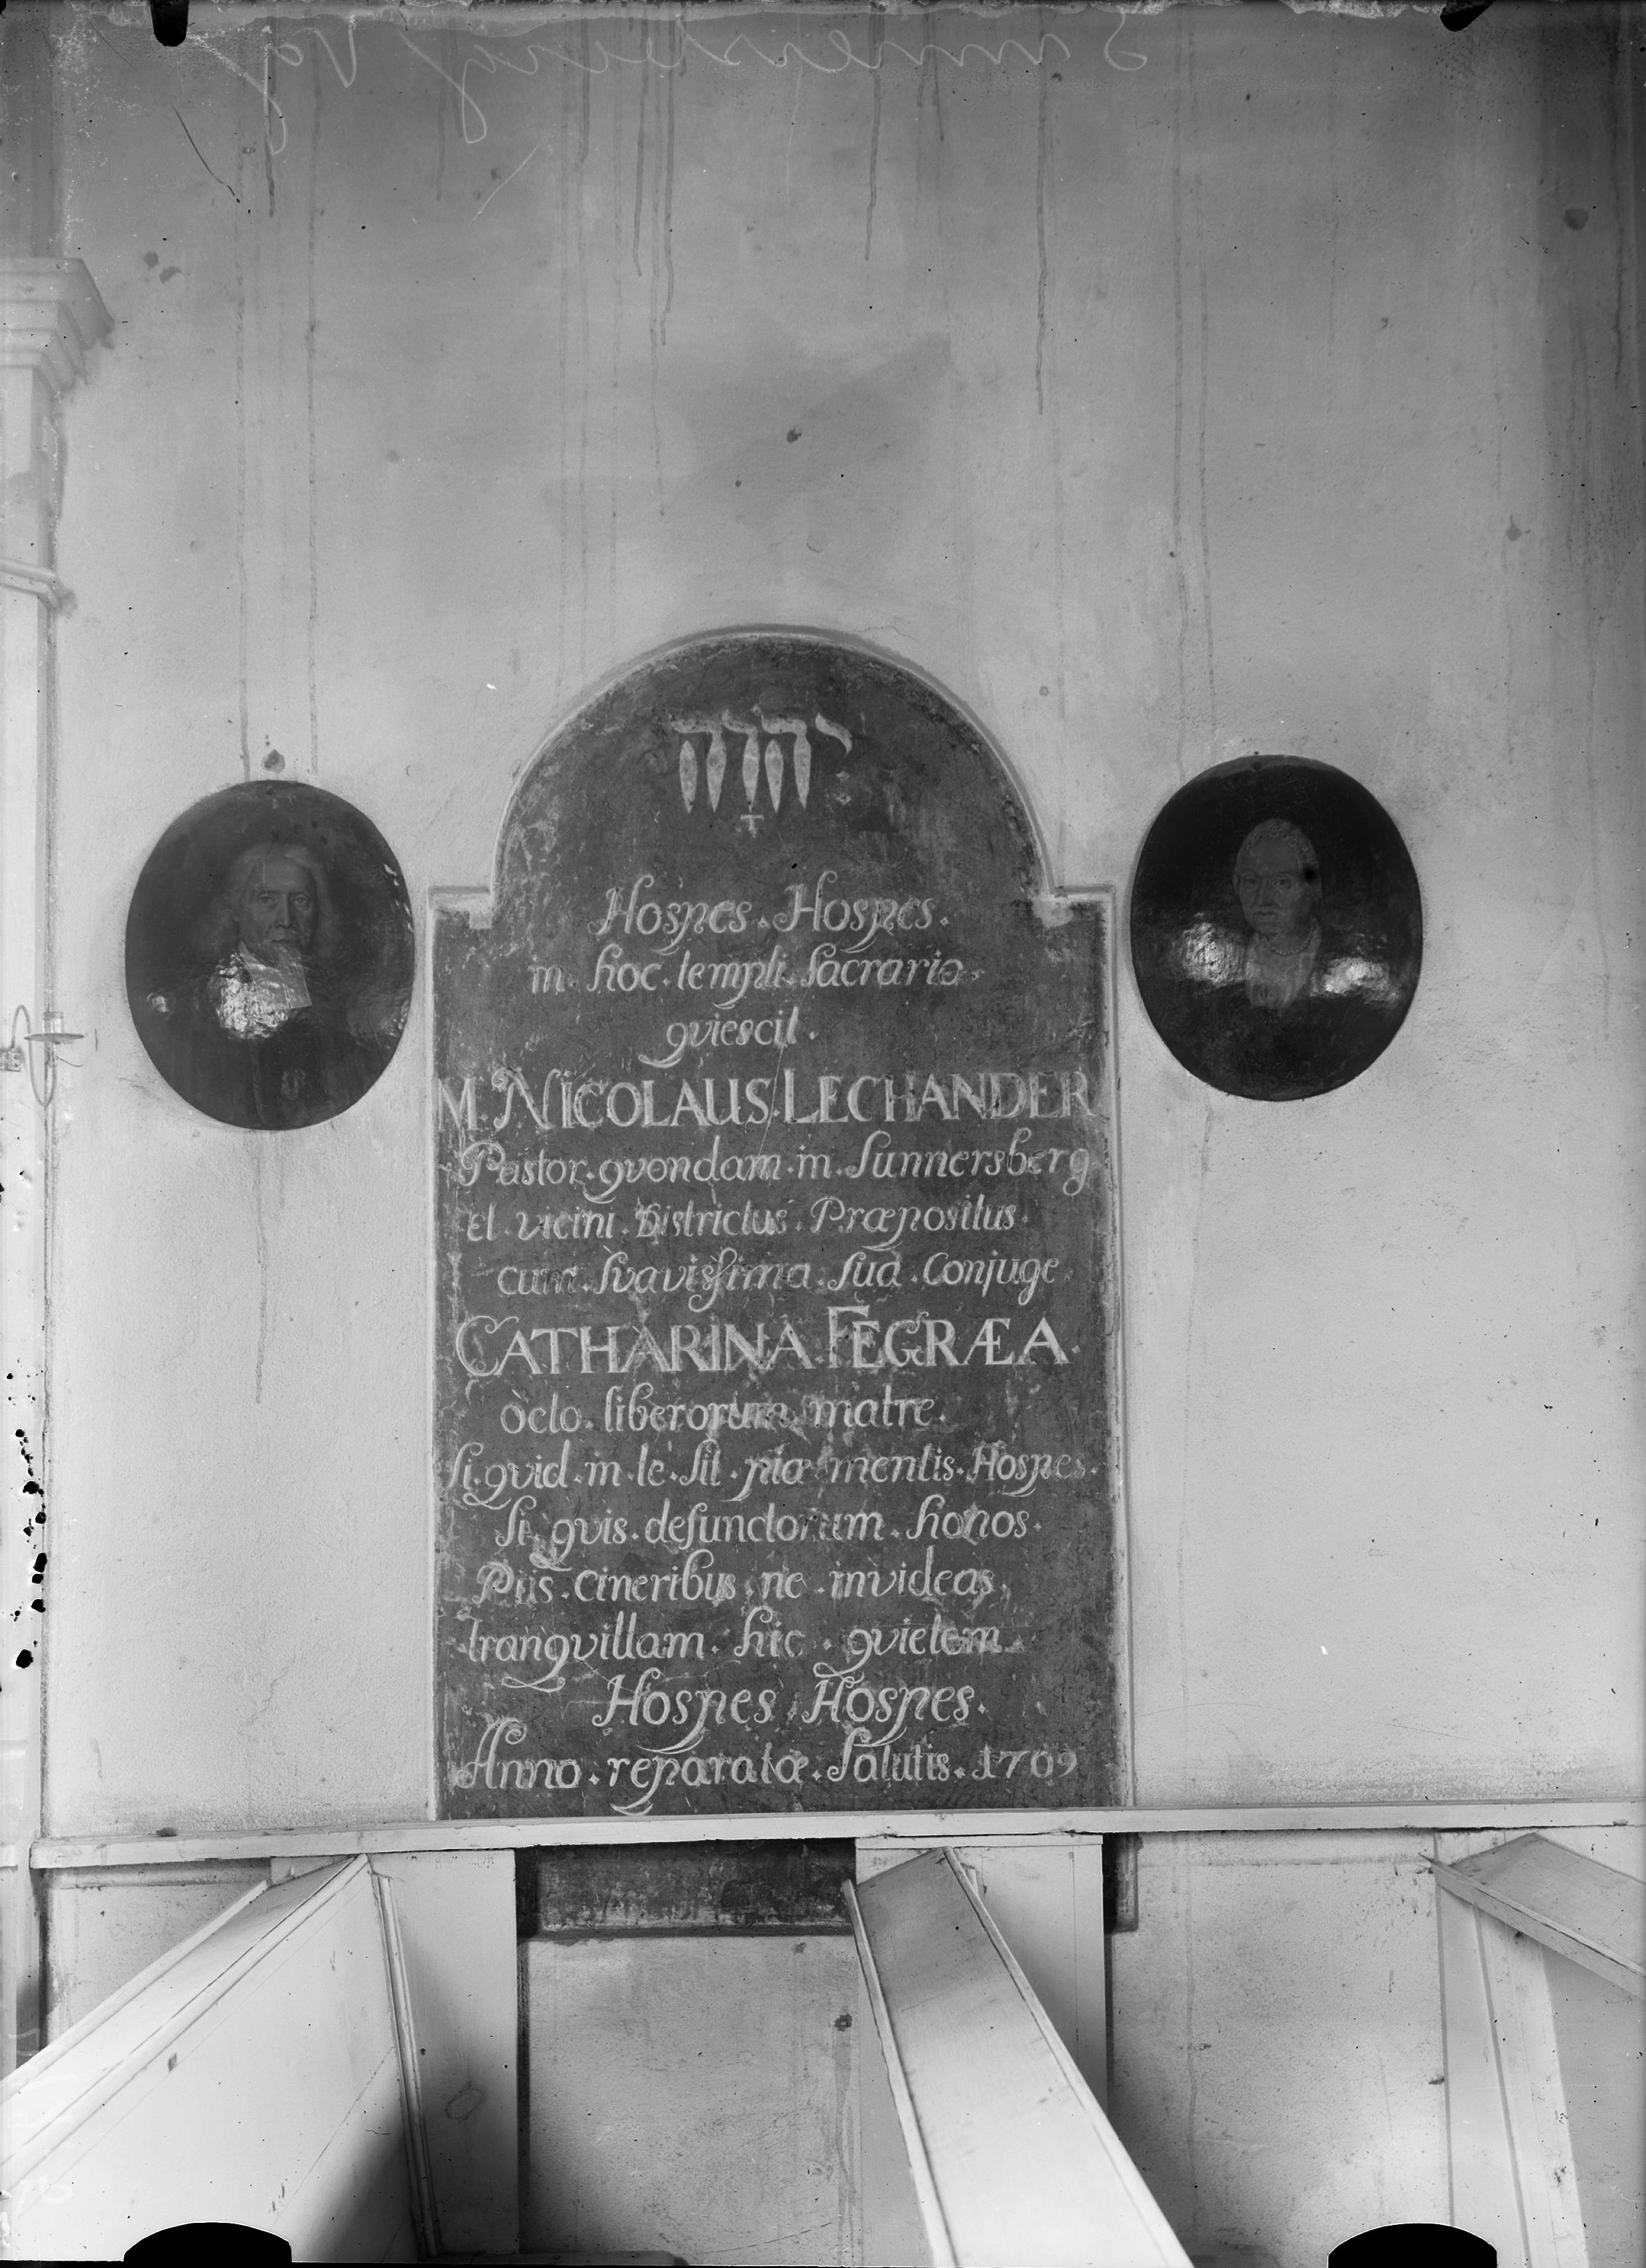 Sunnersberg Vg
יהוה
Hospes. Hospes.
in. hoc. templi. sacrario.
qviescit.
M. NICOLAUS. LECHANDER
Pastor. qvondam. in. Sunnersberg
Et. vicini. Districtus. Præpositus.
cum. svavissima. sua. Conjuge
CATHARINA. FEGRÆA.
octo. liberorum. matre.
Si. qvid. in. te. sit. piæ mentis. Hospes.
Si qvis. defunctorum. honos.
Piis. cineribus. ne. invideas.
tranqvillam. hic. qvietem
Hospes. Hospes.
Anno. reparatæ. Salutis. 1709